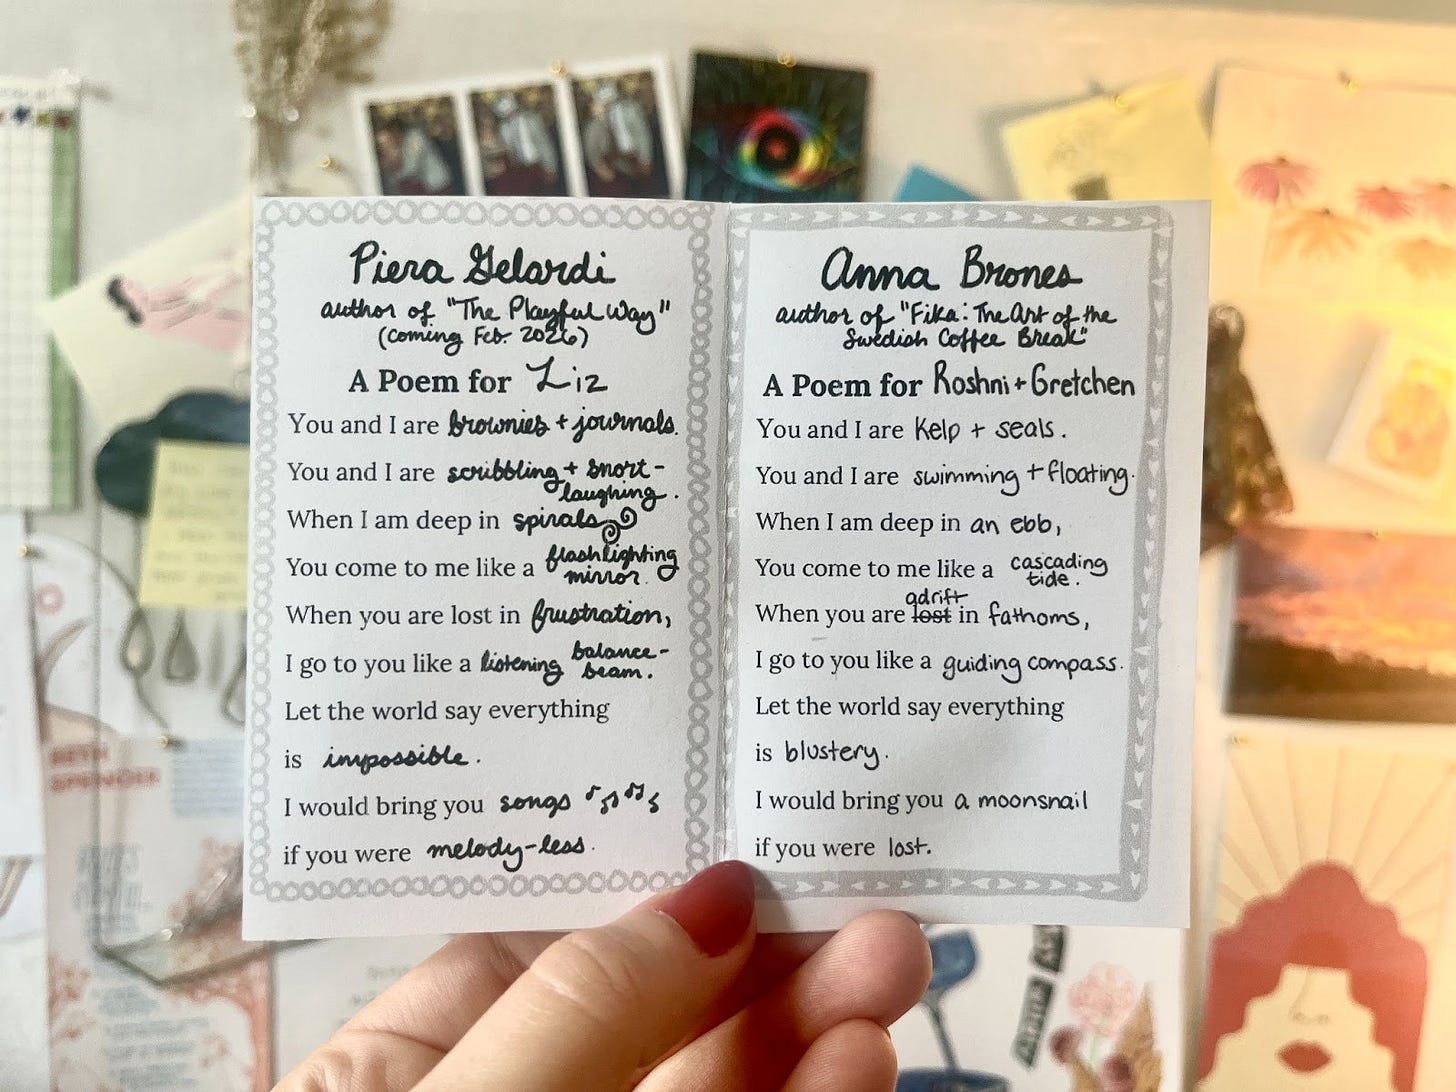 Piera Gelardi
author of "The Playful Way"
(coming Feb. 2026)
A Poem for Liz
You and I are brownies + journals.
You and I are scribbling + snort-
laughing.
When I am deep in spirals
You come to me like a flashlighting
mirror.
When you are lost in frustration,
I go to you like a listening balance-
beam.
Let the world say everything
is impossible.
I would bring you songs
if you were melody-less.
Anna Brones
author of "Fika: The Art of the
Swedish Coffee Break"
A Poem for Roshni + Gretchen
You and I are kelp + seals.
You and I are swimming + floating.
When I am deep in an ebb,
You come to me like a cascading
tide.
adrift
When you are lost in fathoms,
I go to you like a guiding compass.
Let the world say everything
is blustery.
I would bring you a moonsnail
if you were lost.
BETH
SPENCER